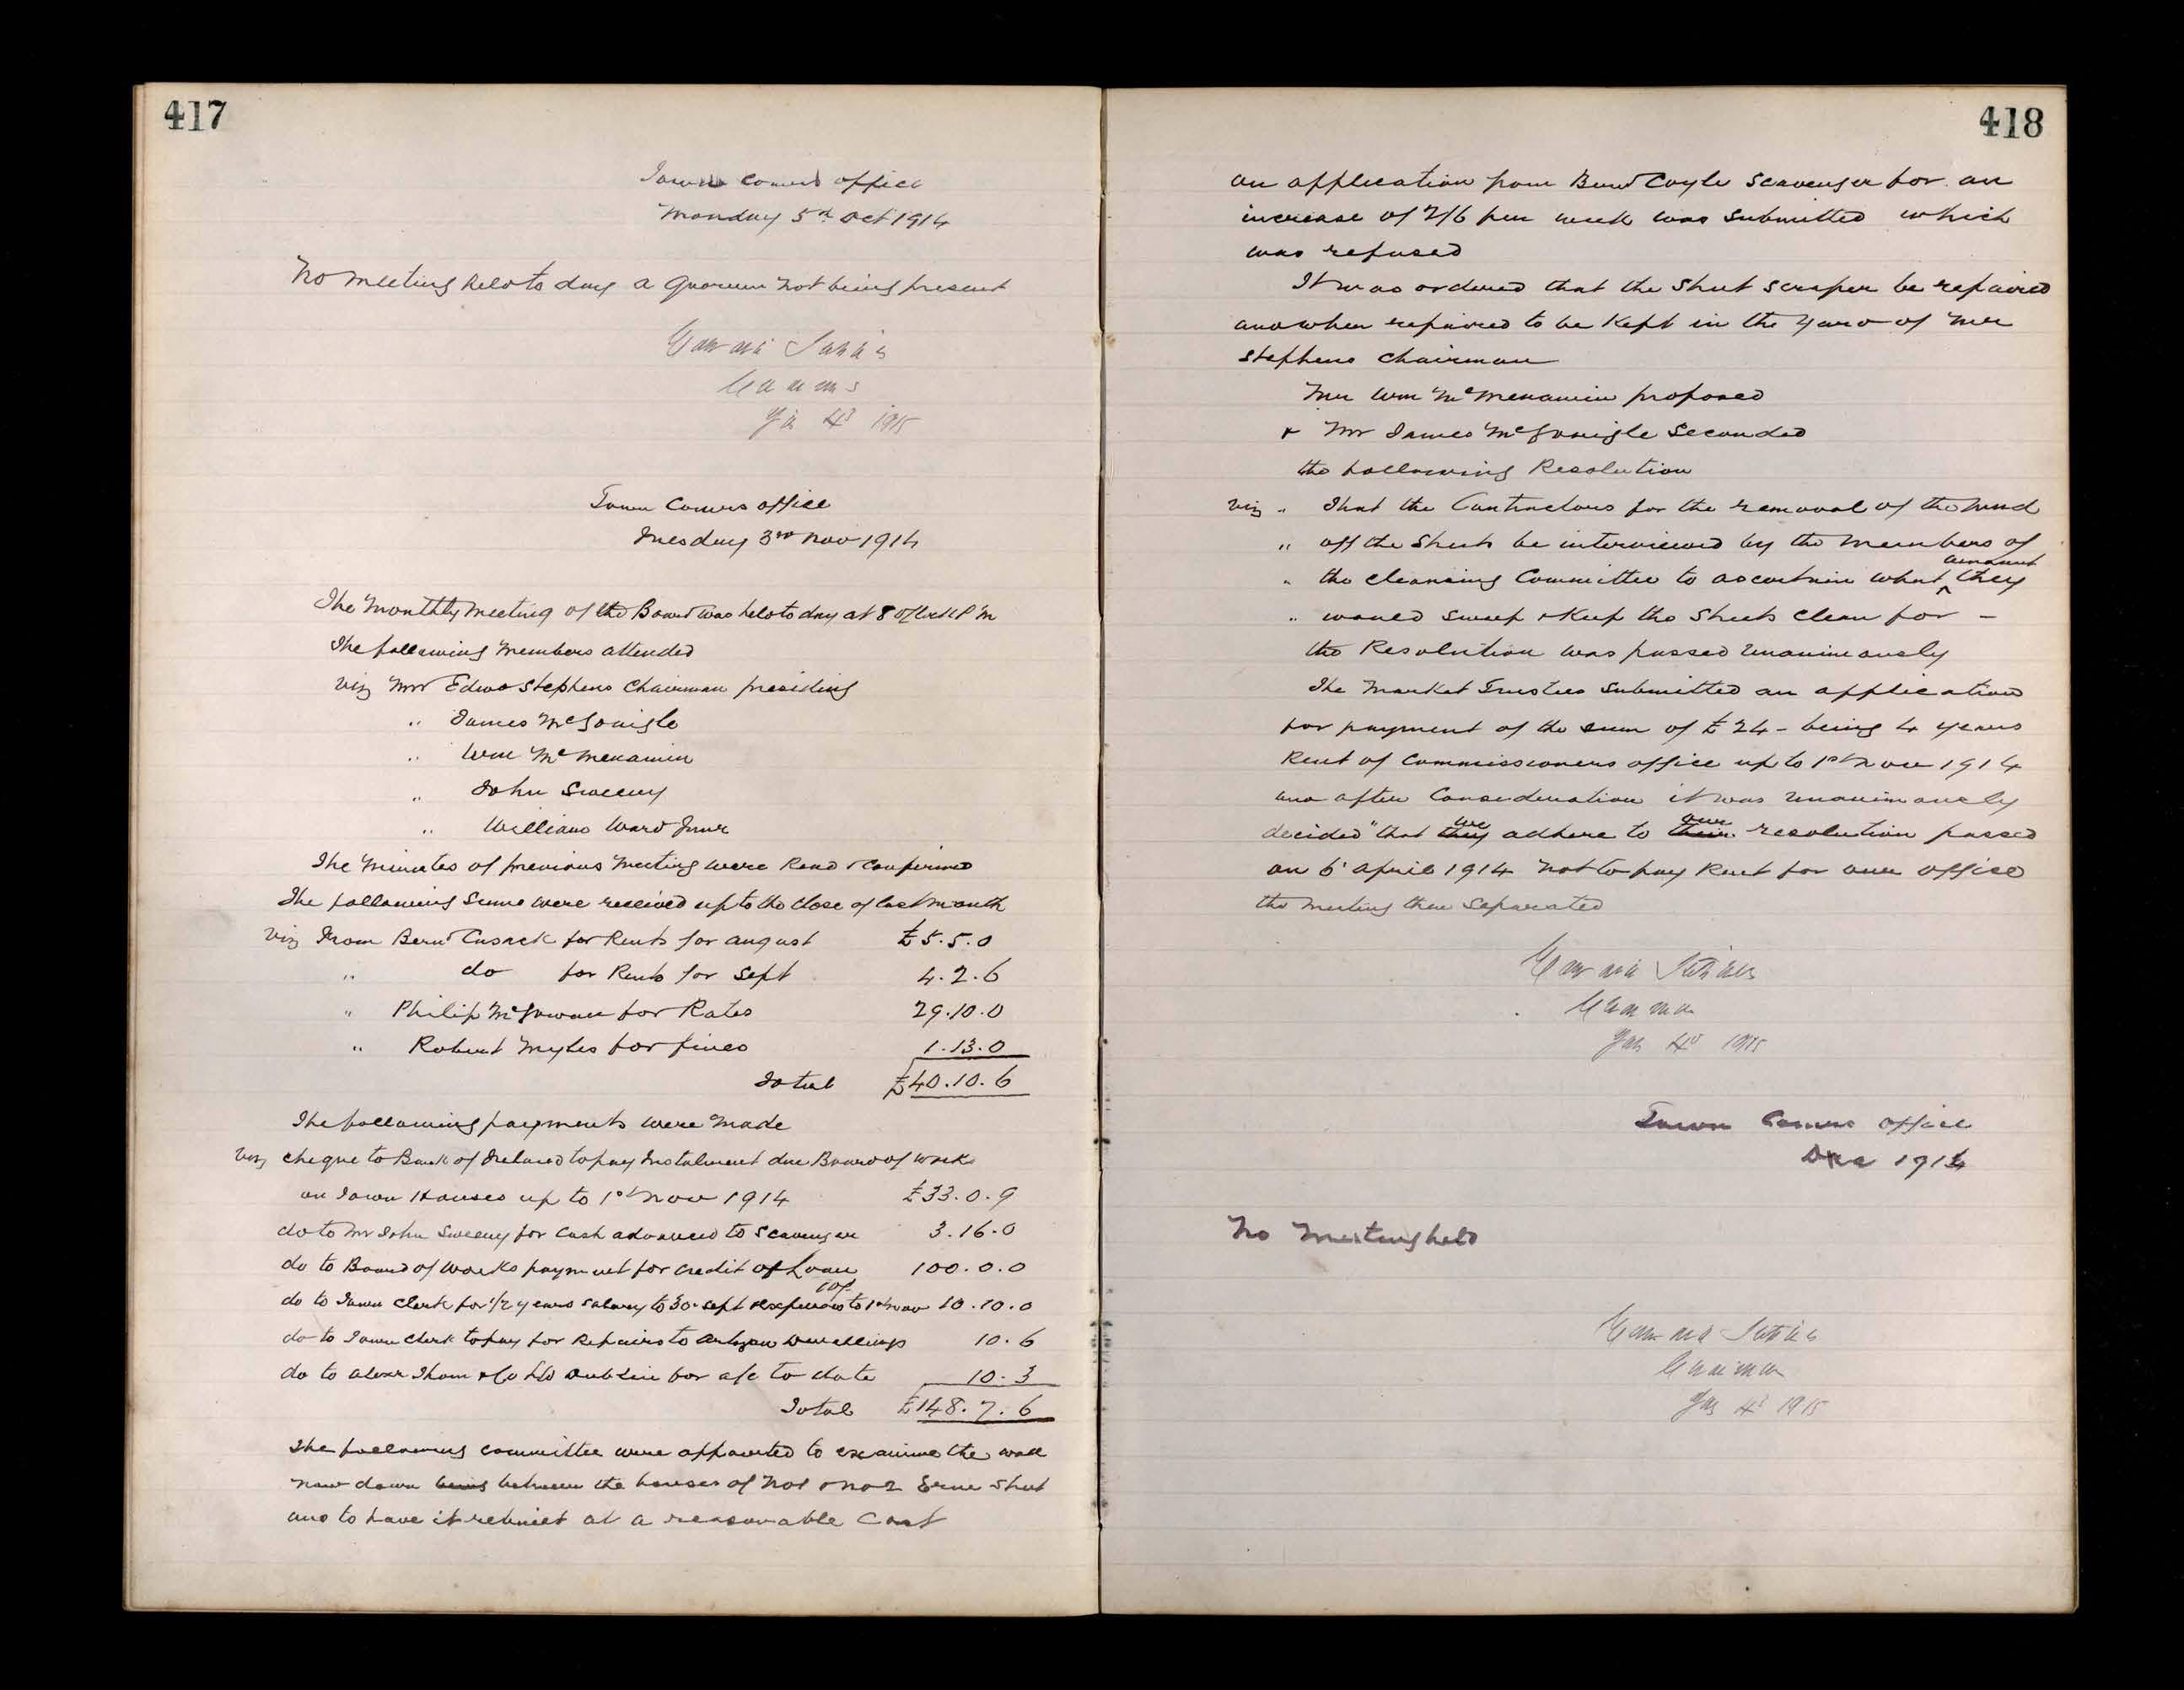 417
Town Comrs office
Monday 5th Oct 1914
No meeting held to day a quorum not being present
Edward Stephens
Chairman
Jan 4th 1915
Town Comrs office
Tuesday 3rd Nov 1914
The Monthly Meeting of the Board was held to day at 8 O'Clock P M
The following Members attended
viz Mr Edwd Stephens Chairman presiding
" James McGonigle
" Wm McMenamin
" John Sweeny
" William Ward Junr
The Minutes of previous Meeting were Read & Confirmed
The following Sums were received up to the close of last month
viz From Bernd Cusack for Rents for August £5.5.0
" do for Rents for Sept 4.2.6
" Philip McGowan for Rates 29.10.0
" Robert Myles for fines 1.13.0
Total £40.10.6
The following payments were made
viz cheque to Bank of Ireland to pay Instalment due Board of Works
on Town Houses up to 1st Nov 1914 £33.0.9
do to Mr John Sweeny for Cash advanced to Scavenger 3.16.0
do to Board of Works payment for credit of Loan 100.0.0
do to Town Clerk for 1/2 years Salary to 30 Sept & expenses 10/- to 1st Nov 10.10.0
do to Town Clerk to pay for Repairs to Artizan Dwellings 10.6
do to Alexr Thom & Co Ltd Dublin for a/c to date 10.3
Total £148.7.6
The following committee were appointed to examine the wall
now down being between the houses of No 1 & No 2 Erne Street
and to have it rebuilt at a reasonable Cost
418
an application from Bernd Coyle Scavenger for an
increase of 2/6 per week was submitted which
was refused
It was ordered that the Street Scraper be repaired
and when repaired to be Kept in the Yard of Mr
Stephens Chairman
Mr Wm McMenamin proposed
& Mr James McGonigle Seconded
the following Resolution
viz " That the Contractors for the removal of the mud
" off the Streets be interviewed by the Members of
" the cleansing Committee to ascertain what amount they
" would sweep & Keep the Streets Clean for –
the Resolution was passed unanimously
The Market Trustees submitted an application
for payment of the sum of £24 – being 4 years
Rent of Commissioners office up to 1st Nov 1914
and after Consideration it was unanimously
decided "that they we adhere to their our resolution passed
on 6 April 1914 not to pay Rent for our office
the meeting then Separated
Edward Stephens
Chairman
Jan 4th 1915
Town Comrs Office
Dec 1914
No Meeting held
Edward Stephens
Chairman
Jan 4th 1915